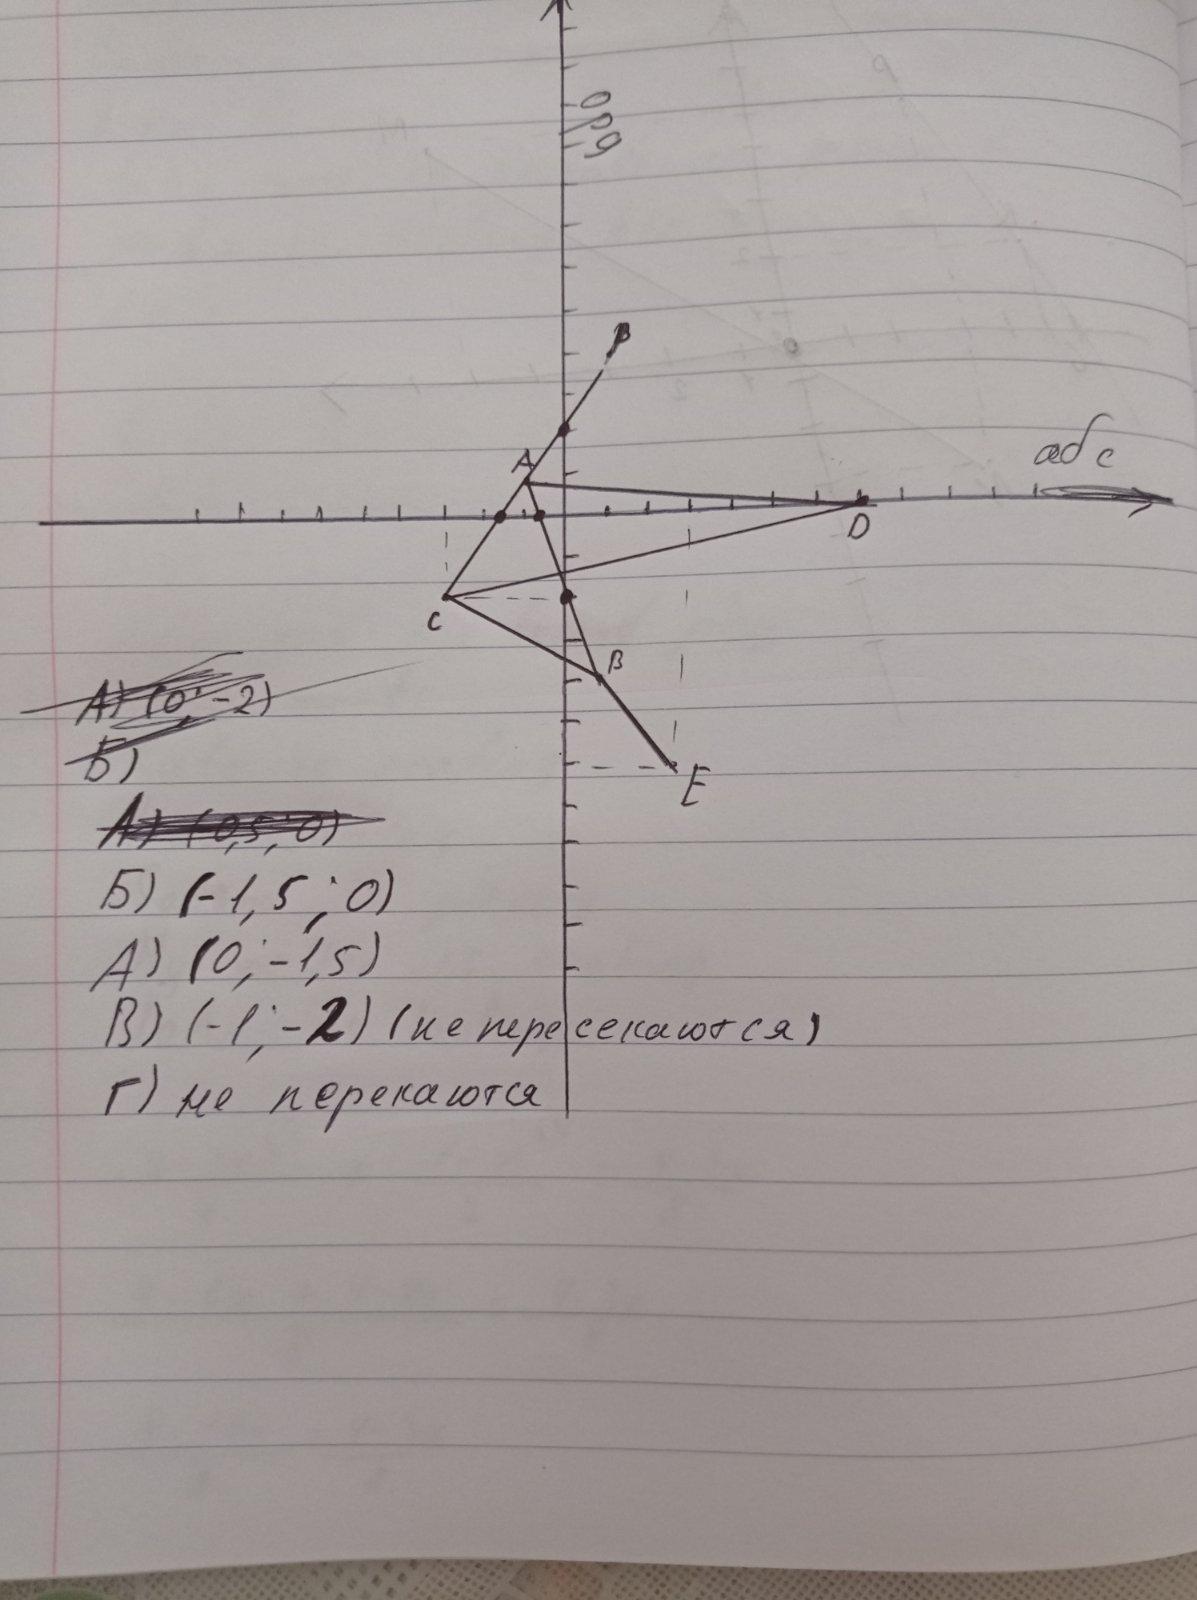 орд
β
абс
A
D
C
B
E
А) (0; -2)
Б)
А) (0,5; 0)
Б) (-1,5; 0)
А) (0; -1,5)
В) (-1; -2) (не пересекаются)
Г) не перекаются